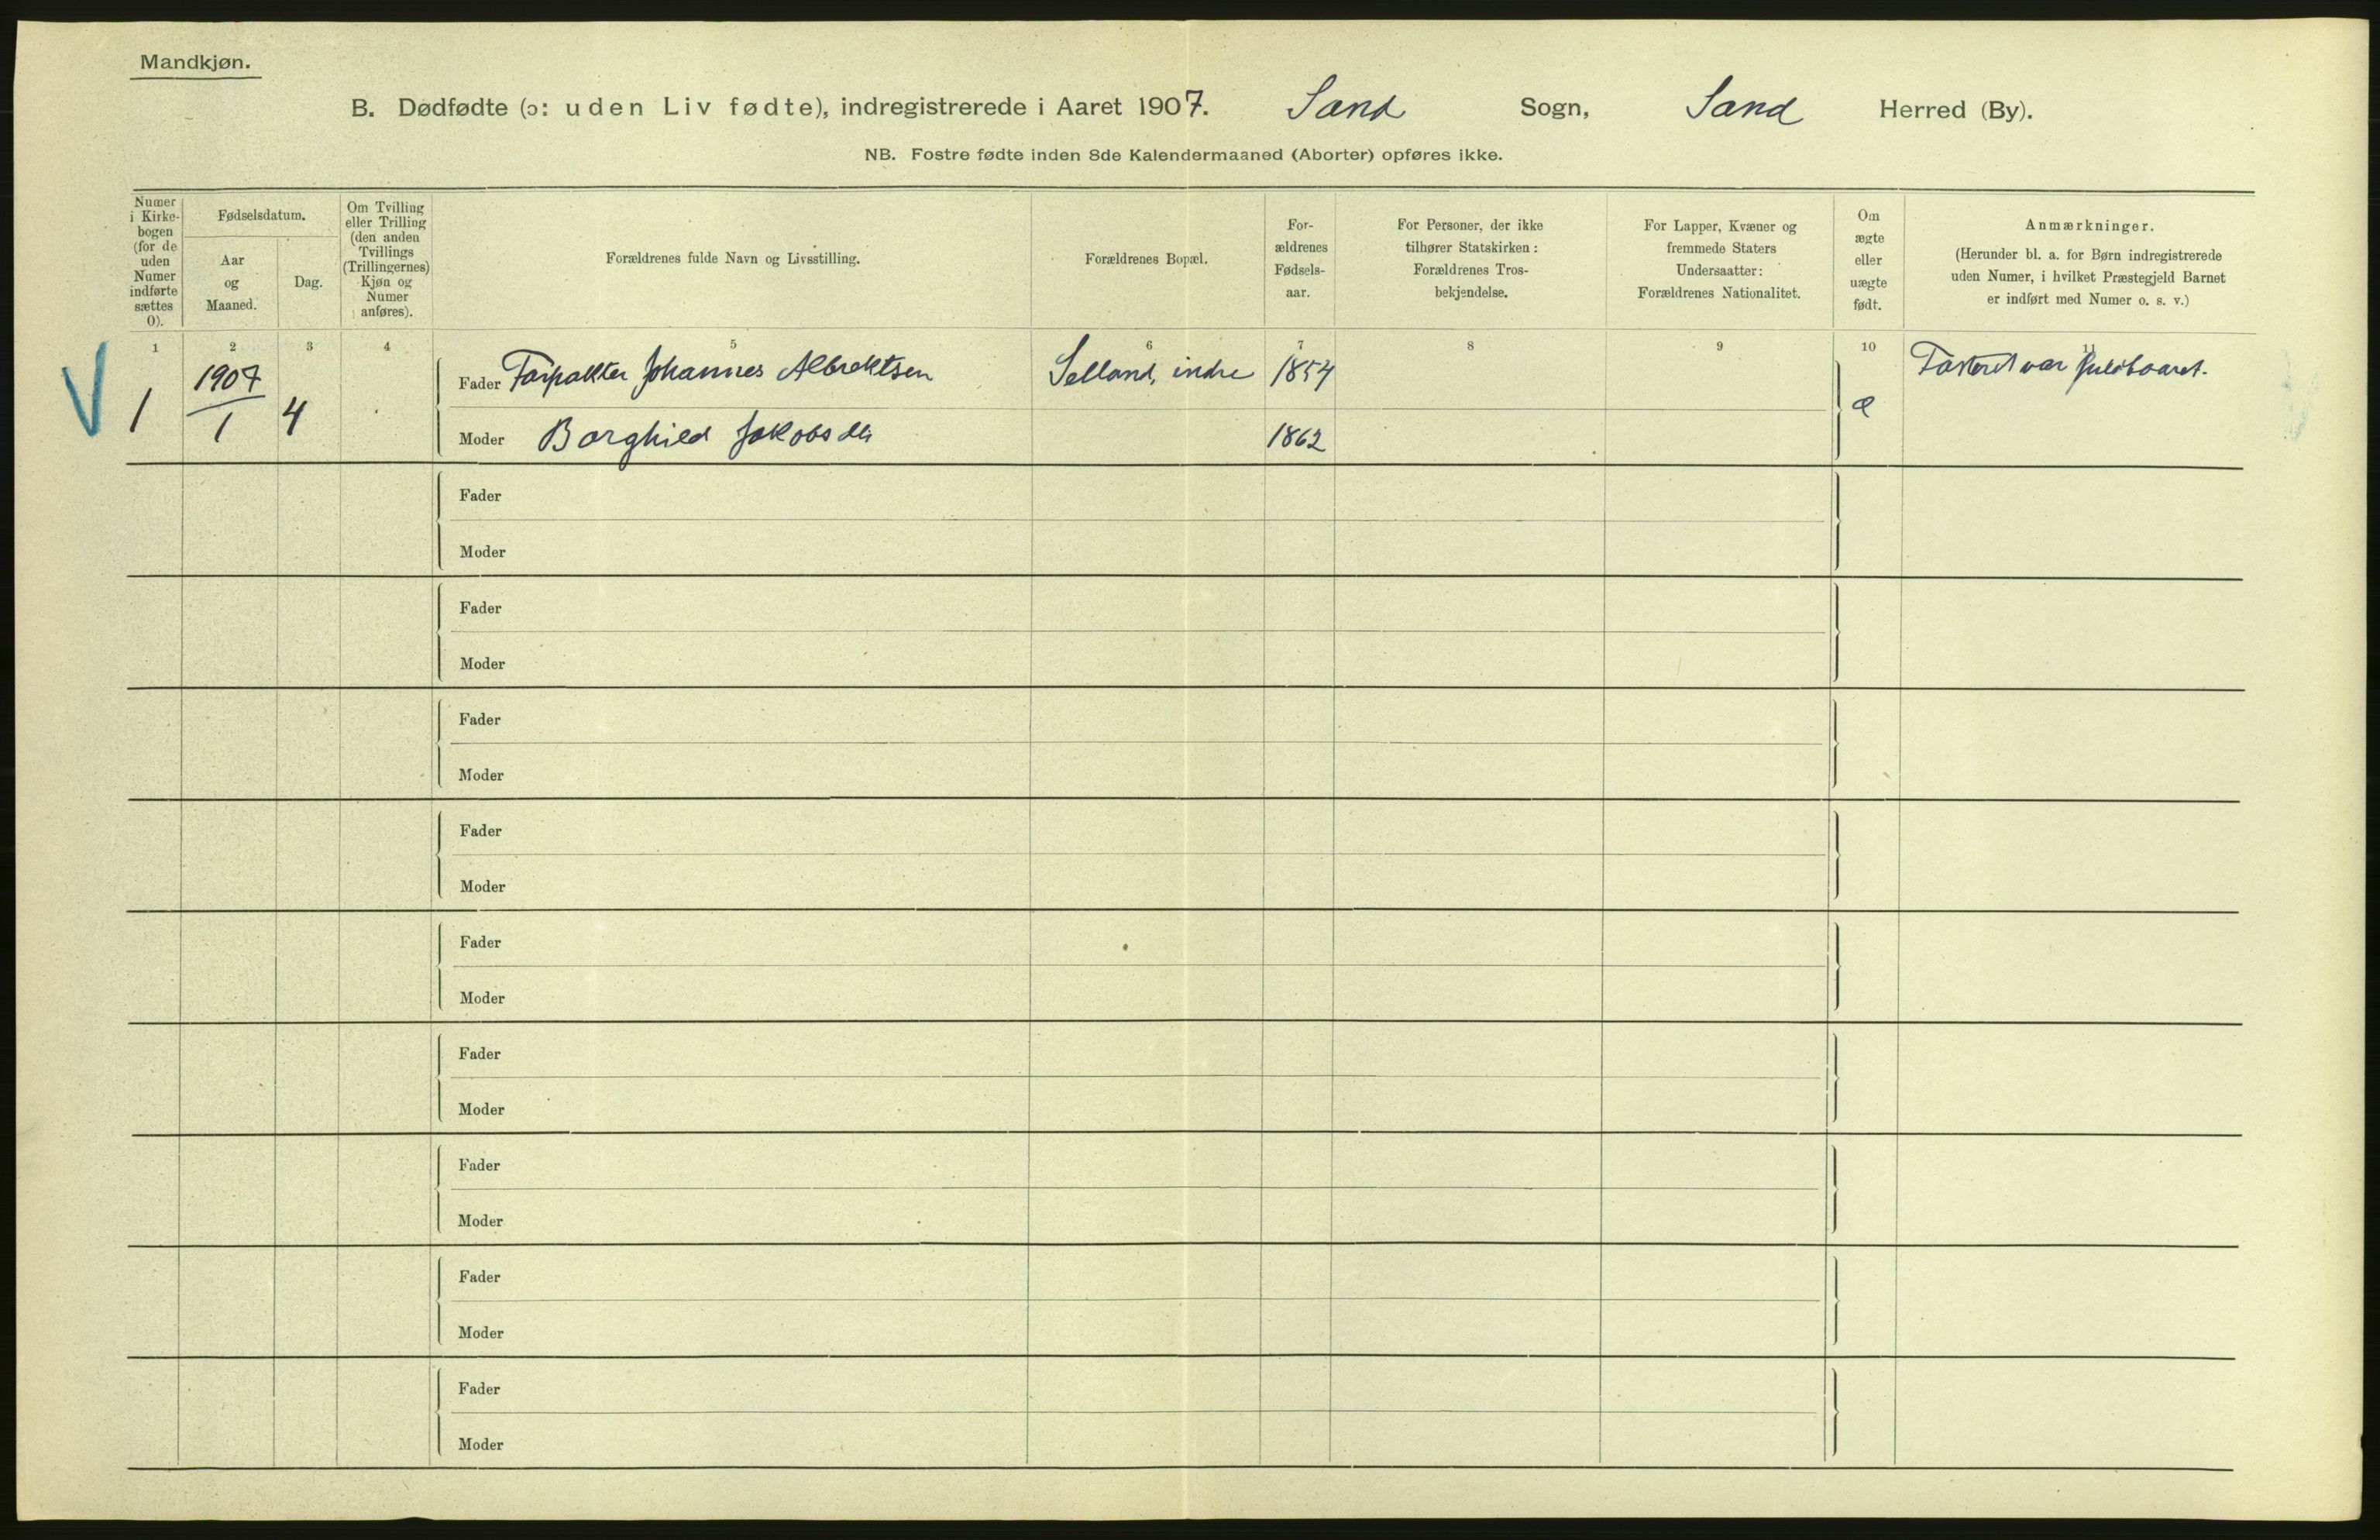 Mandkjøn.
B. Dødfødte (ɔ: uden Liv fødte), indregistrerede i Aaret 1907. Sand Sogn, Sand Herred (By).
NB. Fostre fødte inden 8de Kalendermaaned (Aborter) opføres ikke.
Numer
i Kirke-
bogen
(for de
uden
Numer
indførte
sættes
0).
Fødselsdatum.
Aar
og
Maaned.
Dag.
Om Tvilling
eller Trilling
(den anden
Tvillings
(Trillingernes)
Kjøn og
Numer
anføres).
Forældrenes fulde Navn og Livsstilling.
Forældrenes Bopæl.
For-
ældrenes
Fødsels-
aar.
For Personer, der ikke
tilhører Statskirken:
Forældrenes Tros-
bekjendelse.
For Lapper, Kvæner og
fremmede Staters
Undersaatter:
Forældrenes Nationalitet.
Om
ægte
eller
uægte
født.
Anmærkninger.
(Herunder bl. a. for Børn indregistrerede
uden Numer, i hvilket Præstegjeld Barnet
er indført med Numer o. s. v.)
1 2 3 4 5 6 7 8 9 10 11
V 1 1907/1 4
Fader Forpakter Johannes Albrektsen Selland, indre 1854 æ Fosteret var fuldbaaret.
Moder Borghild Jakobsdtr 1862
Fader
Moder
Fader
Moder
Fader
Moder
Fader
Moder
Fader
Moder
Fader
Moder
Fader
Moder
Fader
Moder
Fader
Moder